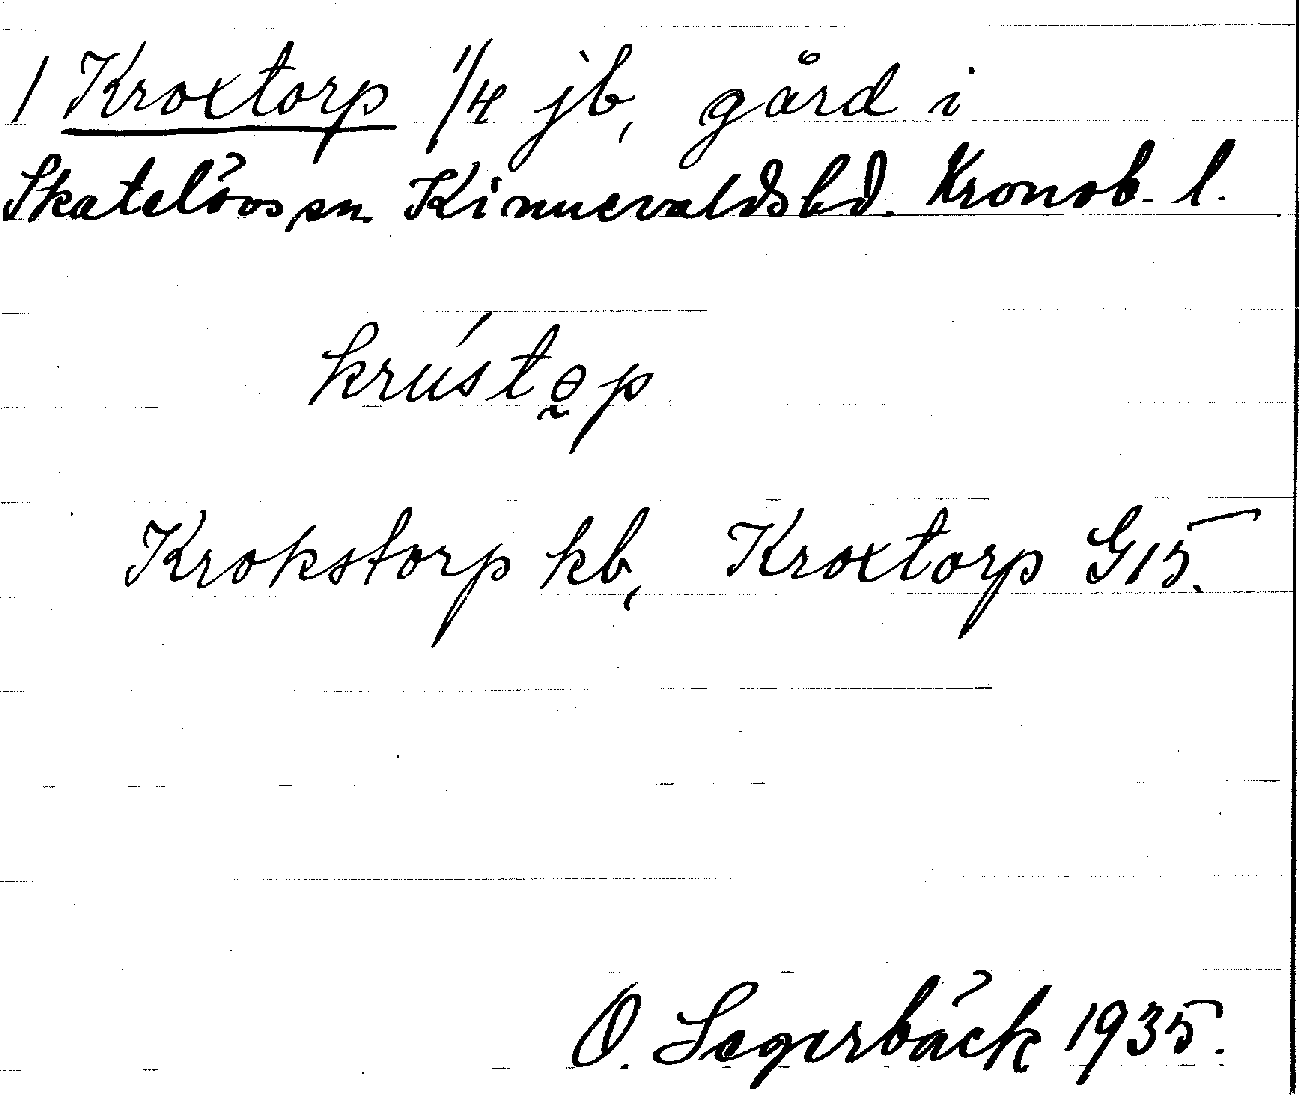 1 Kroxtorp 1/4 jb, gård i
Skatelövs sn. Kinnevalds hd. Kronob. l.
krústə̰p
Krokstorp kb, Kroxtorp G15.
O. Segerbäck 1935.